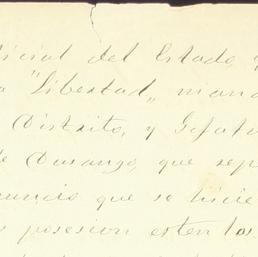 icial del Estado, y
"Libertad„ mand
Distrito, y Gefatu
de Durango, que sep
nuncio que se hicie
posesion esten los